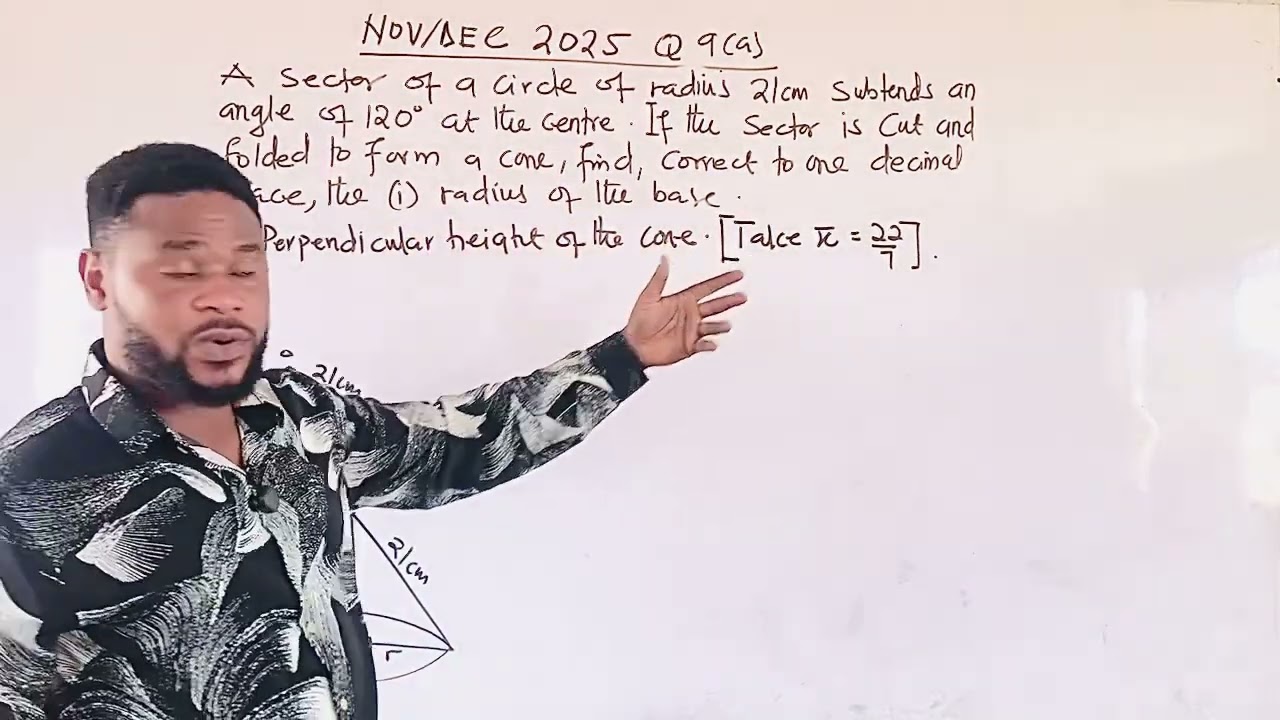 NOV/DEC 2025 Q 9(a)
A sector of a circle of radius 21cm subtends an
angle of 120° at the centre. If the sector is cut and
folded to form a cone, find, correct to one decimal
ace, the (i) radius of the base.
Perpendicular height of the cone. [Take π = 22/7].
21cm
21cm
r